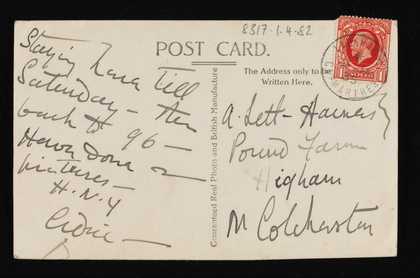 8317.1.4.82
POST CARD.
Staying here till
Saturday - then
back to 96 -
Have done
pictures -
H.N.Y
Cedric -
The Address only to be
Written Here.
Guaranteed Real Photo and British Manufacture
A. Lett-Haines
Pound Farm
Higham
N Colchester